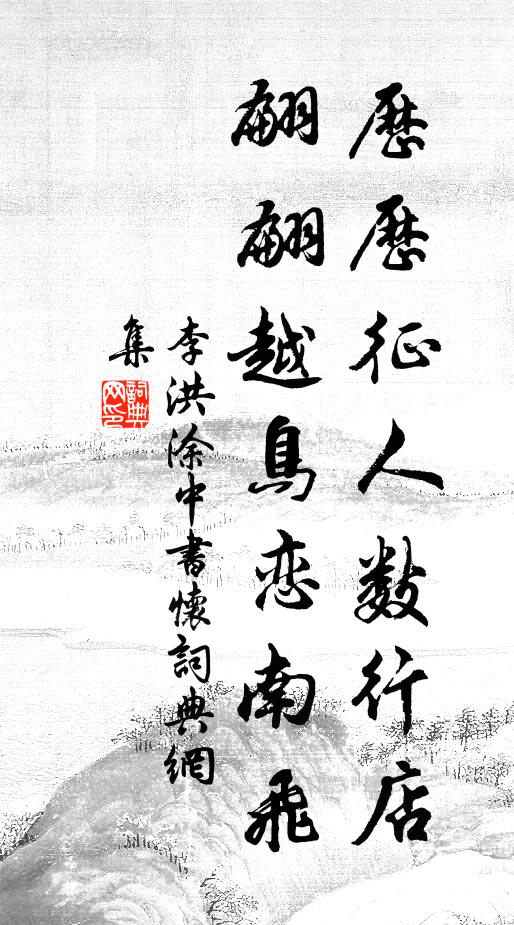 歷歷征人數行店
翩翩越鳥恋南飛
李洪涂中書懷詞典網
集
詞典網印